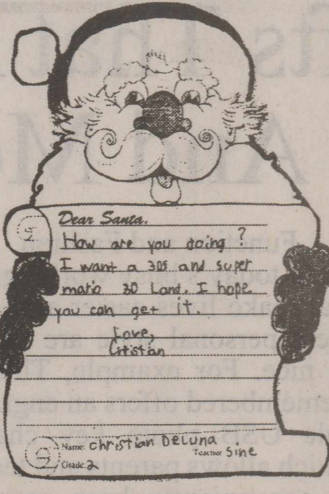 Dear Santa,
How are you doing?
I want a 3DS and super
mario 3D Land. I hope
you can get it.
Love,
Cristian
Name: Christian DeLuna
Teacher Sine
Grade: 2